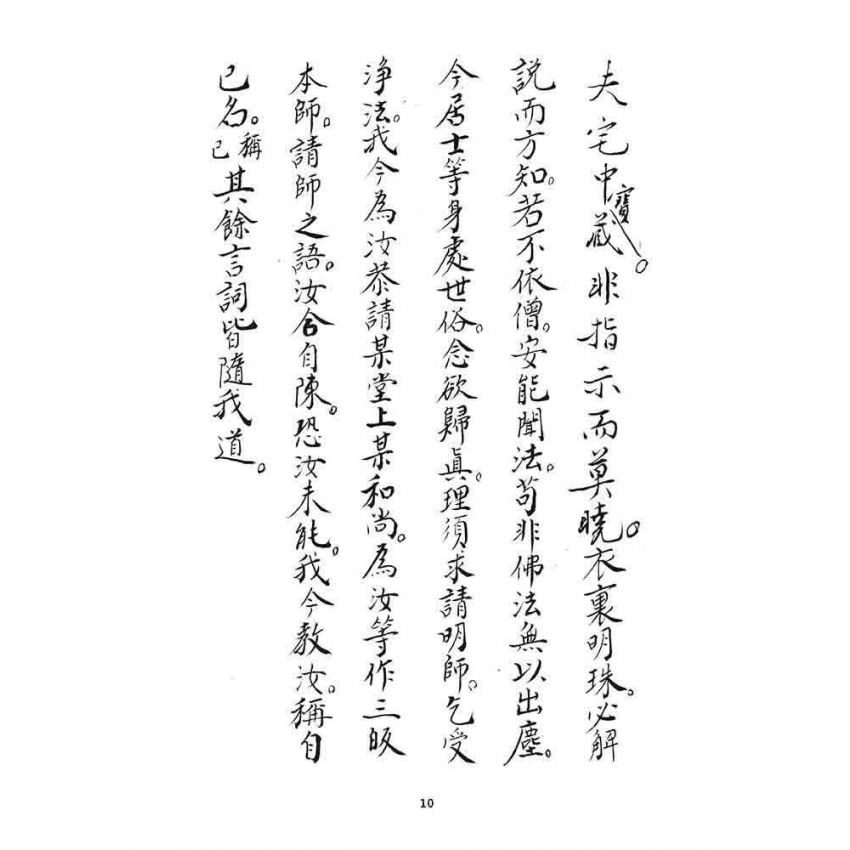 夫宅中寶藏。非指示而莫曉。衣裏明珠。必解
説而方知。若不依僧。安能聞法。苟非佛法無以出塵。
今居士等身處世俗。念欲歸眞。理須求請明師。乞受
净法。我今為汝恭請某堂上某和尚。為汝等作三皈
本師。請師之語。汝合自陳。恐汝未能。我今教汝。稱自
已名。已稱其餘言詞皆隨我道。
10